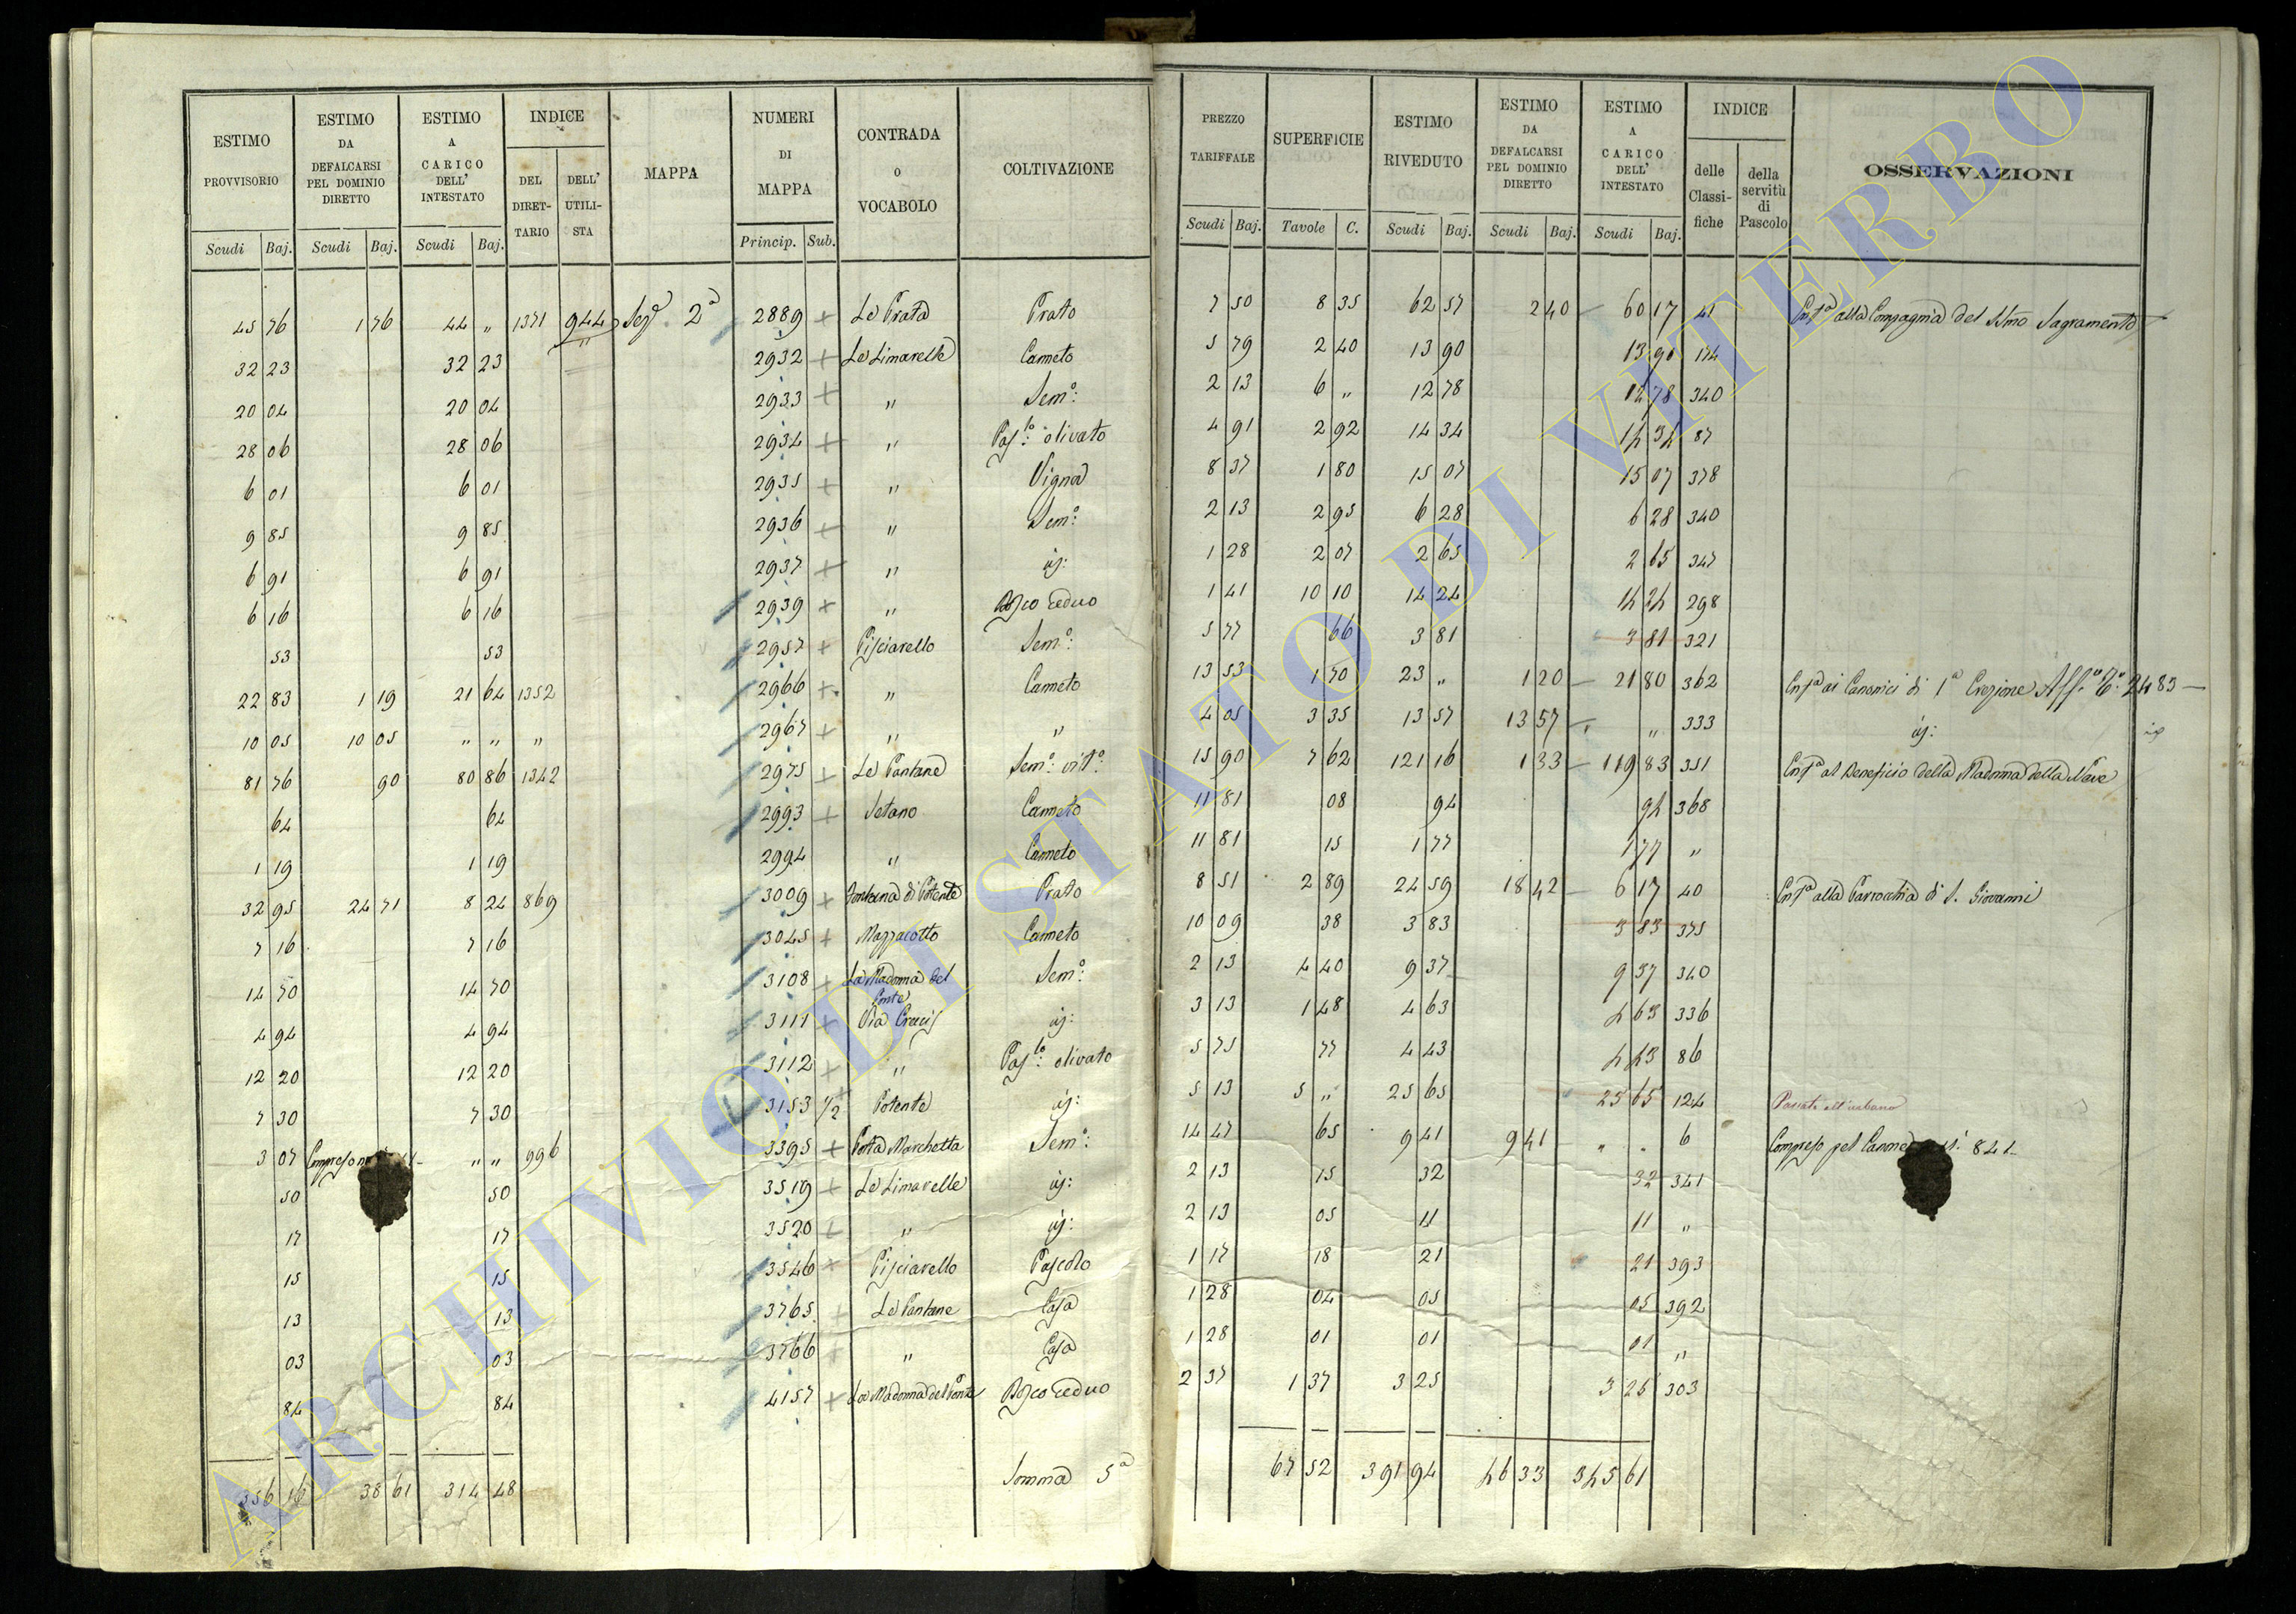 ESTIMO PROVVISORIO | ESTIMO DA DEFALCARSI PEL DOMINIO DIRETTO | ESTIMO A CARICO DELL' INTESTATO | INDICE | MAPPA | NUMERI DI MAPPA | CONTRADA o VOCABOLO | COLTIVAZIONE | PREZZO TARIFFALE | SUPERFICIE | ESTIMO RIVEDUTO | ESTIMO DA DEFALCARSI PEL DOMINIO DIRETTO | ESTIMO A CARICO DELL' INTESTATO | INDICE | OSSERVAZIONI
DEL DIRET-TARIO | DELL' UTILI-STA | delle Classi-fiche | della servitù di Pascolo
Scudi | Baj. | Scudi | Baj. | Scudi | Baj. | Princip. | Sub. | Scudi | Baj. | Tavole | C. | Scudi | Baj. | Scudi | Baj. | Scudi | Baj.
45 76 | 1 76 | 44 " | 1371 | 944 | Sez. 2ª | 2889 + | Le Prata | Prato | 7 50 | 8 35 | 62 57 | 2 40 | 60 17 | 41 | Enfª alla Compagnia del SSmo Sagramento
32 23 | 32 23 | " | 2932 + | Le Limarelle | Canneto | 5 79 | 2 40 | 13 90 | 13 90 | 174
20 04 | 20 04 | 2933 + | " | Semº: | 2 13 | 6 " | 12 78 | 12 78 | 340
28 06 | 28 06 | 2934 + | " | Pasto: olivato | 4 91 | 2 92 | 14 34 | 14 34 | 87
6 01 | 6 01 | 2935 + | " | Vigna | 8 37 | 1 80 | 15 07 | 15 07 | 378
9 85 | 9 85 | 2936 + | " | Semº: | 2 13 | 2 95 | 6 28 | 6 28 | 340
6 91 | 6 91 | 2937 + | " | id: | 1 28 | 2 07 | 2 65 | 2 65 | 347
6 16 | 6 16 | 2939 + | " | Bosco ceduo | 1 41 | 10 10 | 14 24 | 14 24 | 298
53 | 53 | 2957 + | Pisciarello | Semº: | 5 77 | 66 | 3 81 | 3 81 | 321
22 83 | 1 19 | 21 64 | 1352 | 2966 + | " | Canneto | 13 53 | 1 70 | 23 " | 1 20 | 21 80 | 362 | Enfª ai Canonici di 1ª Erezione 2483
10 05 | 10 05 | " " | " | 2967 + | " | " | 4 05 | 3 35 | 13 57 | 13 57 | " | 333 | id: | id
81 76 | 90 | 80 86 | 1342 | 2975 + | Le Pantane | Semº: vitº: | 15 90 | 7 62 | 121 16 | 1 33 | 119 83 | 351 | Enfª al Beneficio della Madonna della Neve
64 | 64 | 2993 + | Setano | Canneto | 11 81 | 08 | 94 | 94 | 368
1 19 | 1 19 | 2994 | " | Canneto | 11 81 | 15 | 1 77 | 1 77 | "
32 95 | 24 71 | 8 24 | 869 | 3009 + | Fontana di Potente | Prato | 8 51 | 2 89 | 24 59 | 18 42 | 6 17 | 40 | Enfª alla Parrocchia di S. Giovanni
7 16 | 7 16 | 3045 + | Mazzacotto | Canneto | 10 09 | 38 | 3 83 | 3 83 | 375
14 70 | 14 70 | 3108 + | La Madonna del Ponte | Semº: | 2 13 | 4 40 | 9 37 | 9 37 | 340
4 94 | 4 94 | 3111 + | Via Crucis | id: | 3 13 | 1 48 | 4 63 | 4 63 | 336
12 20 | 12 20 | 3112 + | " | Pasto: olivato | 5 75 | 77 | 4 43 | 4 43 | 86
7 30 | 7 30 | 3153 1/2 + | Potente | id: | 5 13 | 5 " | 25 65 | 25 65 | 124 | Passato all'urbano
3 07 | Compreso | " " | 996 | 3395 + | Porta Marchetta | Semº: | 14 47 | 65 | 9 41 | 9 41 | " " | 6 | Compreso pel 841
50 | 50 | 3519 + | Le Limarelle | id: | 2 13 | 15 | 32 | 32 | 341
17 | 17 | 3520 + | " | id: | 2 13 | 05 | 11 | 11 | "
15 | 15 | 3546 + | Pisciarello | Pascolo | 1 17 | 18 | 21 | 21 | 393
13 | 13 | 3765 + | Le Pantane | Casa | 1 28 | 04 | 05 | 05 | 392
03 | 03 | 3766 + | " | Casa | 1 28 | 01 | 01 | 01 | "
84 | 84 | 4157 + | La Madonna del Ponte | Bosco ceduo | 2 37 | 1 37 | 3 25 | 3 25 | 303
356 16 | 38 61 | 314 48 | Somma 5ª | 67 52 | 391 94 | 46 33 | 345 61
ARCHIVIO DI STATO DI VITERBO